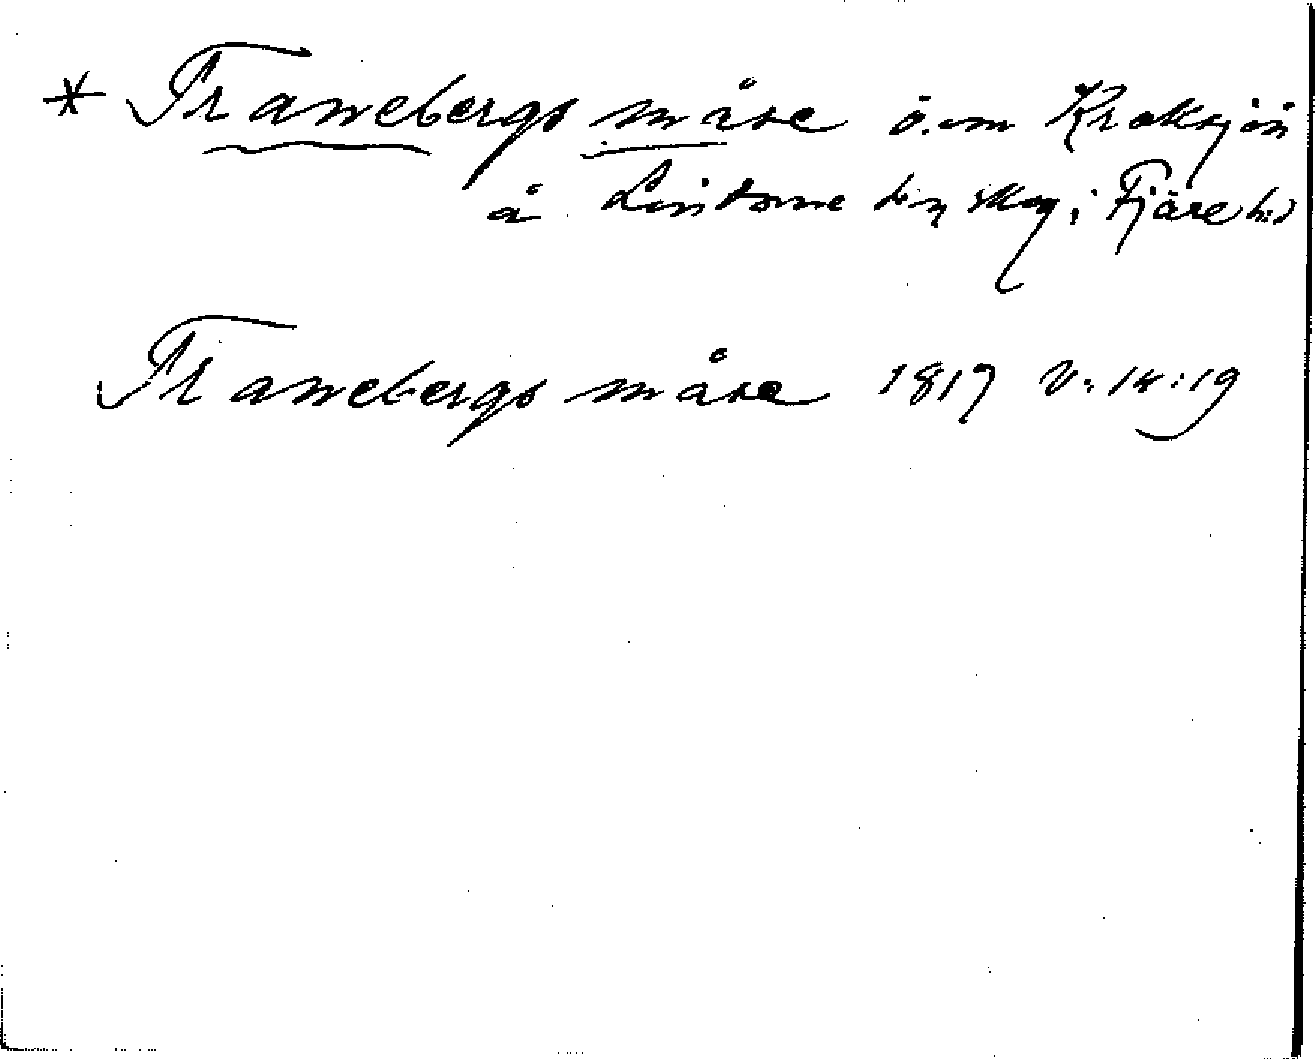 * Tranebergs måse ö. om Kroksjön
å Lindome hvz skog i Fjäre hd
Tranebergs måse 1817 V:14:19